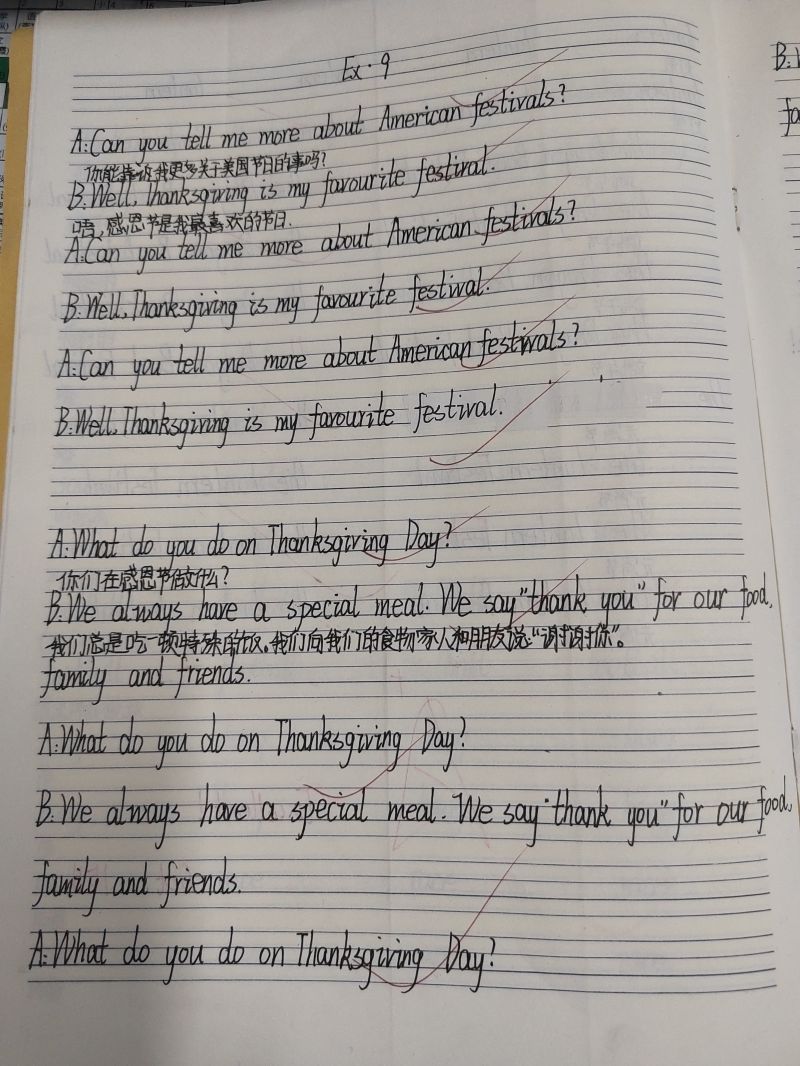 Ex. 9
A: Can you tell me more about American festivals?
你能告诉我更多关于美国节日的事吗?
B: Well, Thanksgiving is my favourite festival.
唔,感恩节是我最喜欢的节日.
A: Can you tell me more about American festivals?
B: Well, Thanksgiving is my favourite festival.
A: Can you tell me more about American festivals?
B: Well, Thanksgiving is my favourite festival.
A: What do you do on Thanksgiving Day?
你们在感恩节做什么?
B: We always have a special meal. We say "thank you" for our food,
我们总是吃一顿特殊的饭。我们向我们的食物家人和朋友说:“谢谢你”。
family and friends.
A: What do you do on Thanksgiving Day?
B: We always have a special meal. We say "thank you" for our food,
family and friends.
A: What do you do on Thanksgiving Day?
B: